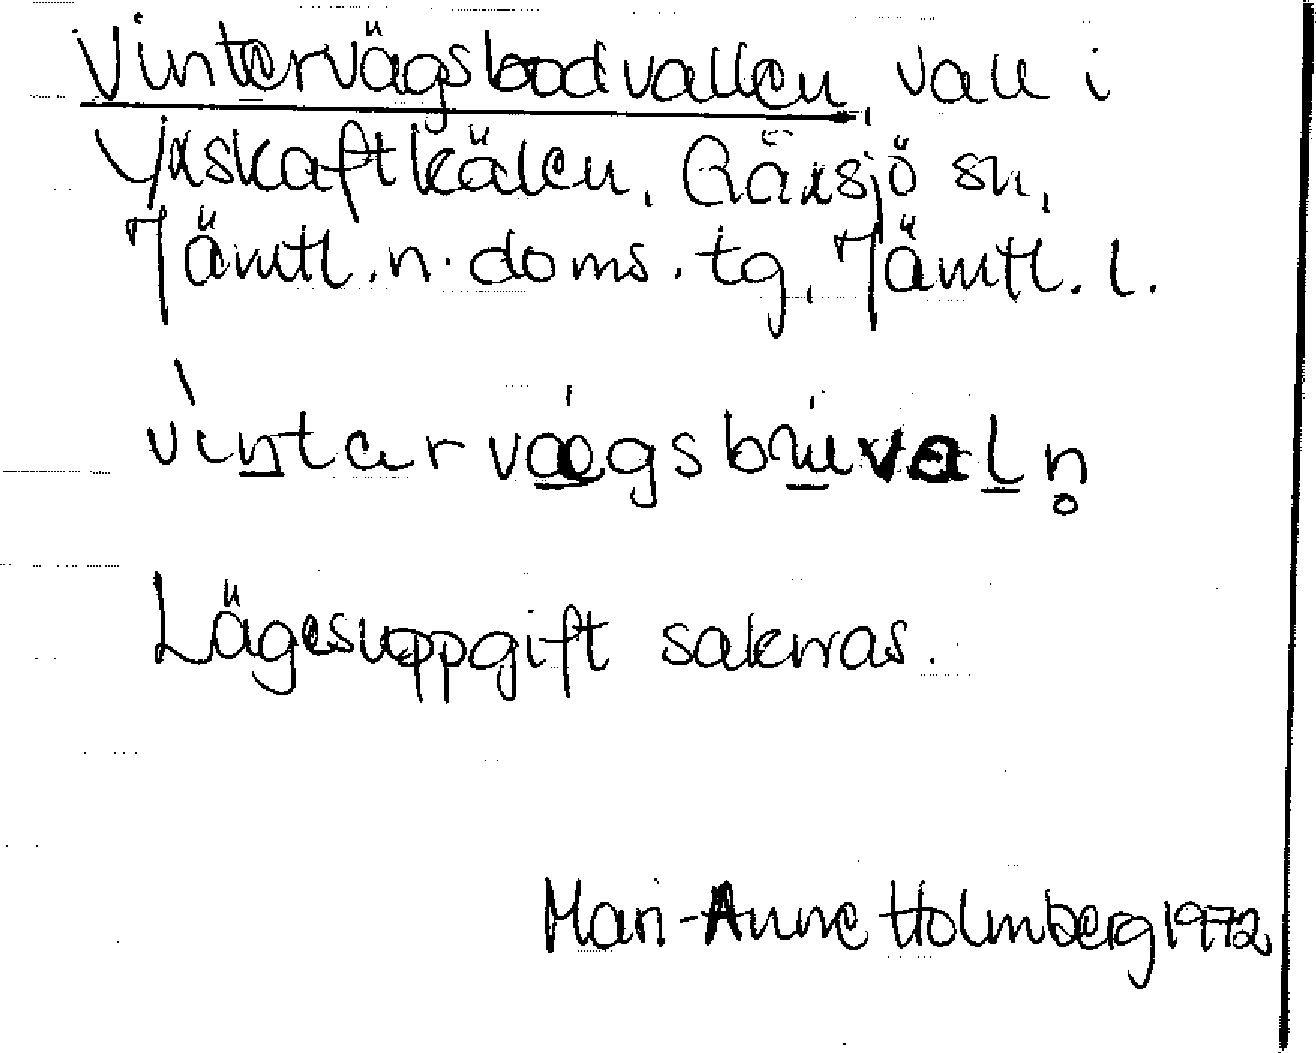 Vintervägsbodvallen, vall i
Yxskaftkälen, Gåxsjö sn,
Jämtl. n. doms. tg, Jämtl. l.
Lägesuppgift saknas.
Mari-Anne Holmberg 1972